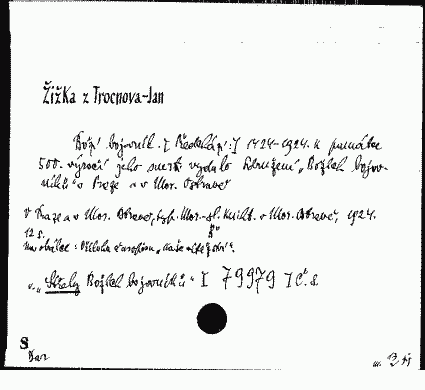 Žižka z Trocnova-Jan
Boží bojovník. [Předehází:] 1424-1924. K památce
500. výročí jeho smrti vydalo Sdružení „Božích bojov-
níků" v Praze a v Mor. Ostravě
V Praze a v Mor. Ostravě, typ. Mor.-sl. kniht. v Mor. Ostravě, 1924.
12 s. 8°
Na obálce: Příloha časopisu „Naše
„ Božích bojovníků" I 79979 I č. s.
8